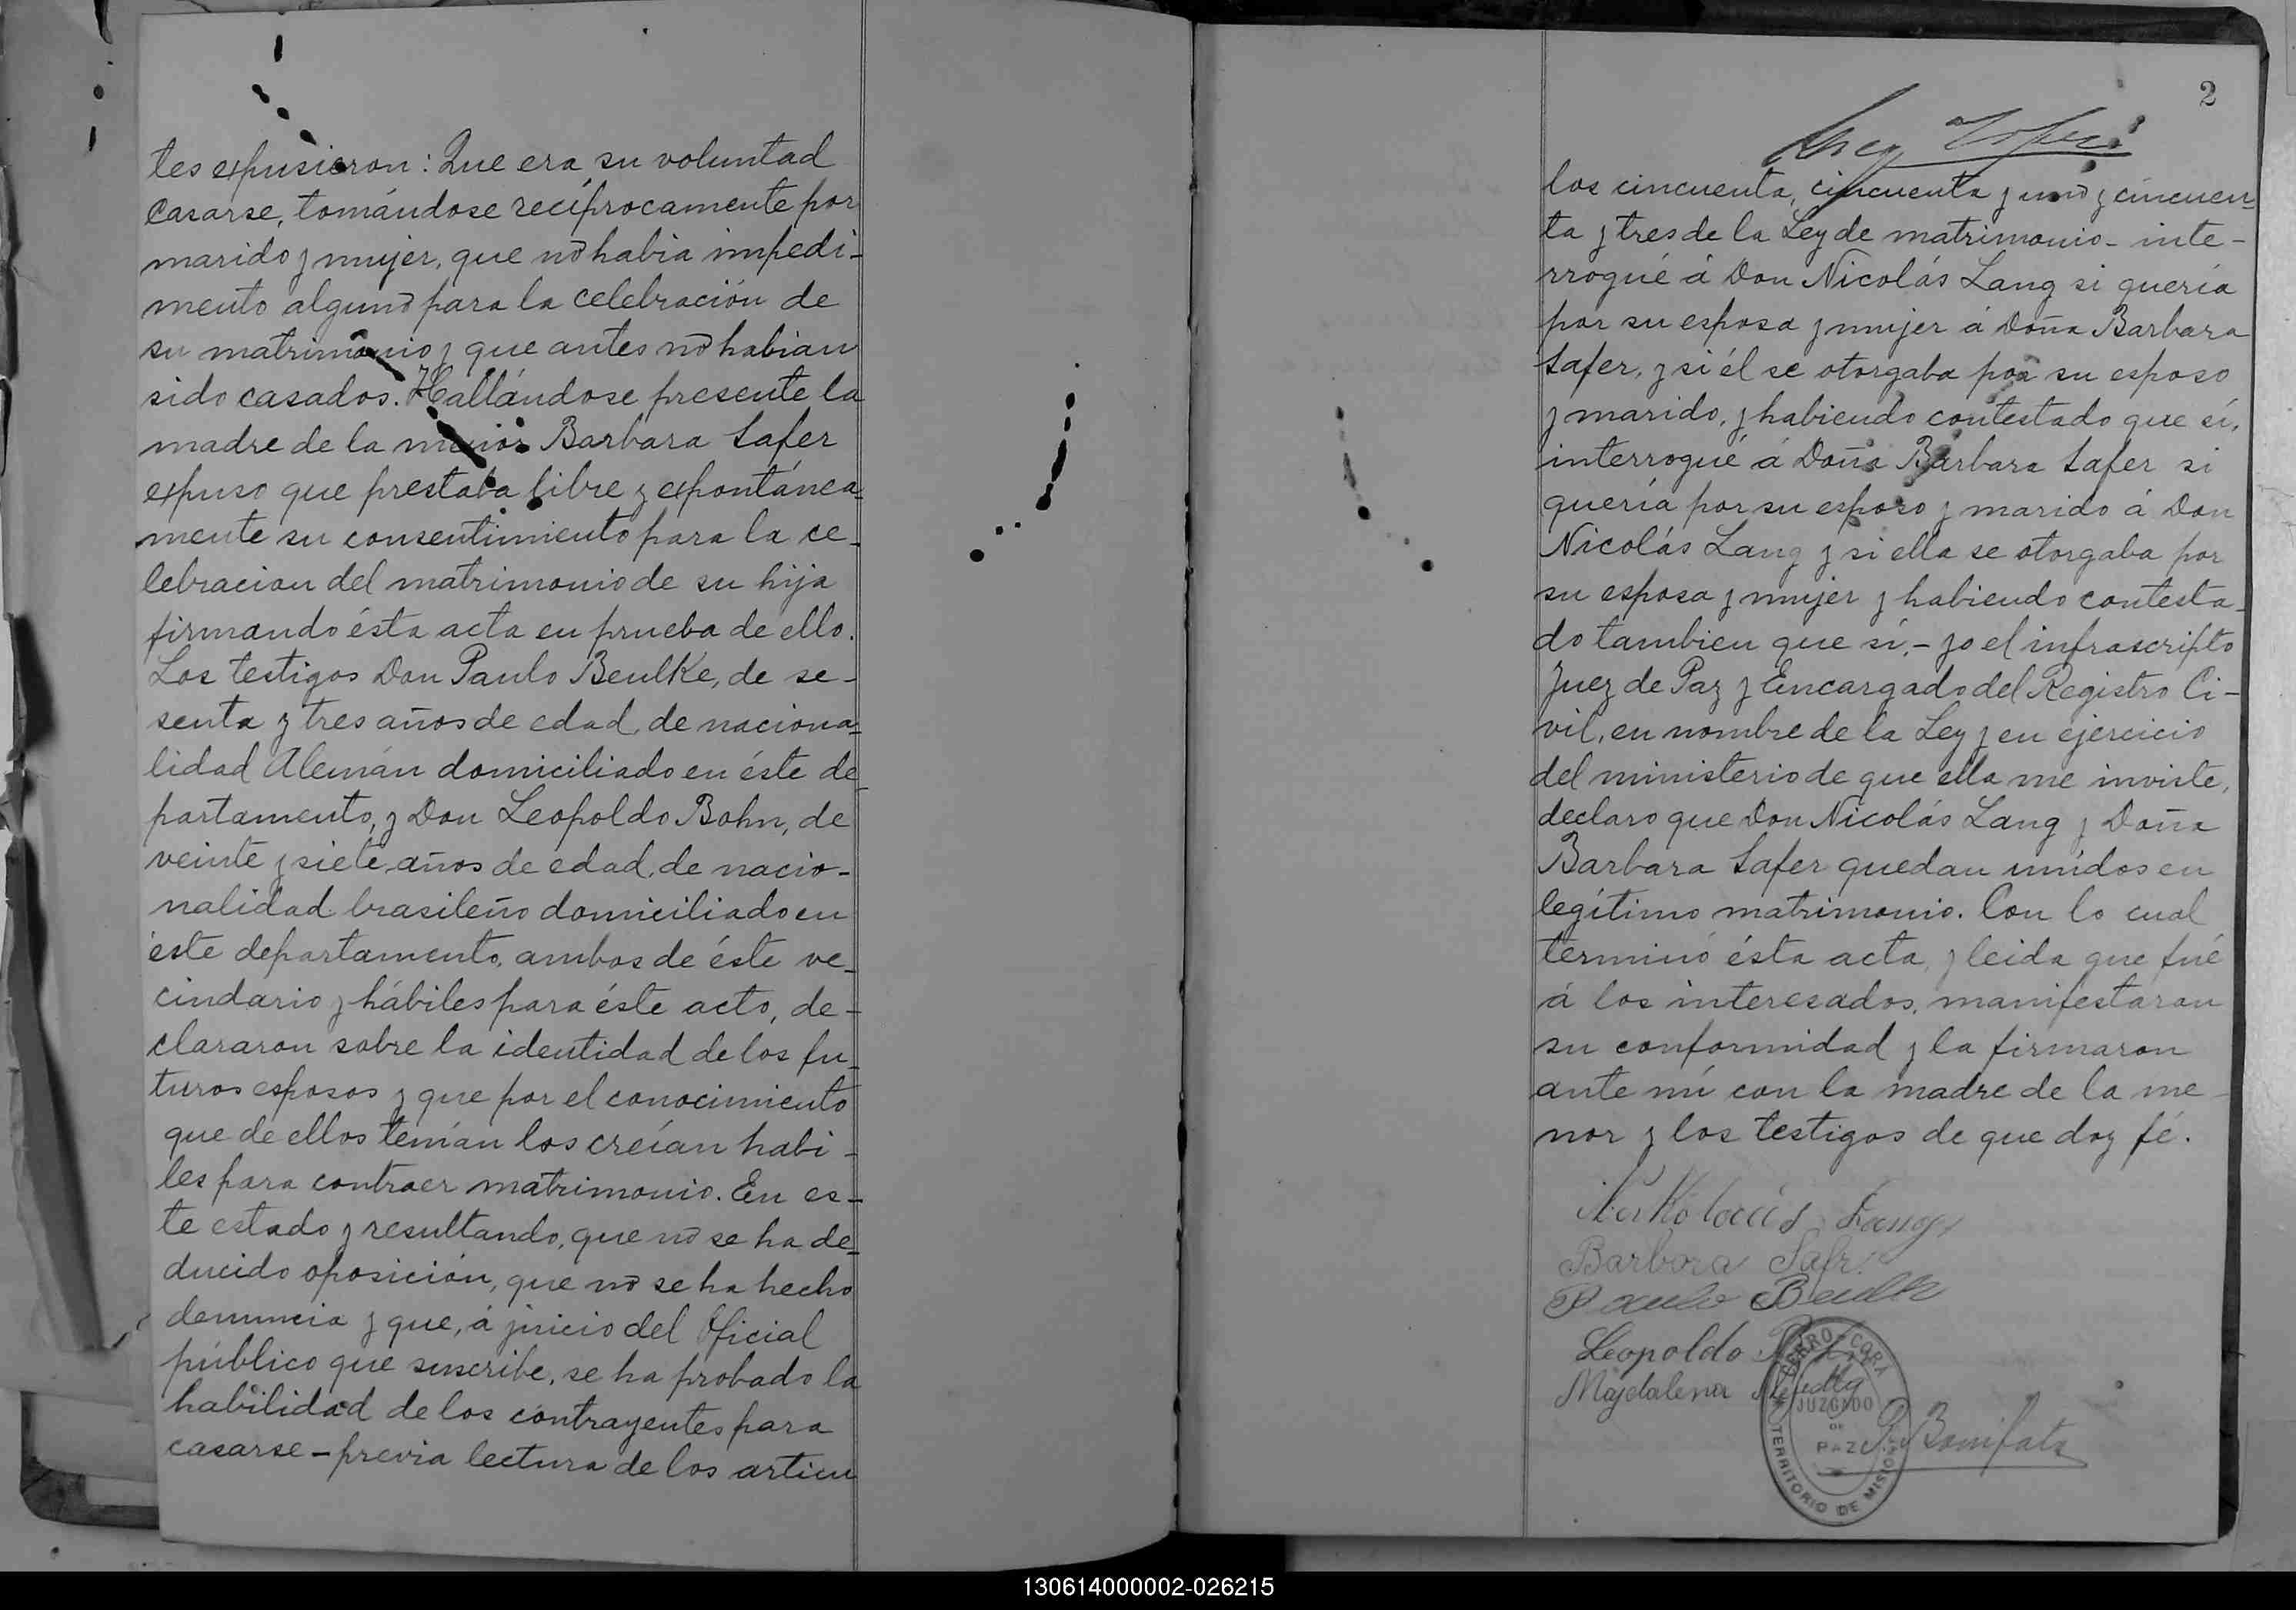 tes expusieron: Que era su voluntad
casarse, tomándose recíprocamente por
marido y mujer, que no habia impedi-
mento alguno para la celebración de
su matrimonio y que antes no habian
sido casados. Hallándose presente la
madre de la menor Barbara Safer
expuso que prestaba libre y expontánea-
mente su consentimiento para la ce-
lebracion del matrimonio de su hija
firmando ésta acta en prueba de ello.
Los testigos Don Paulo Beulke, de se-
senta y tres años de edad, de naciona-
lidad Alemán domiciliado en éste de-
partamento, y Don Leopoldo Bohn, de
veinte y siete años de edad, de nacio-
nalidad brasileño domiciliado en
éste departamento, ambos de éste ve-
cindario y hábiles para éste acto, de-
clararon sobre la identidad de los fu-
turos esposos y que por el conocimiento
que de ellos tenían los creían habi-
les para contraer matrimonio. En es-
te estado y resultando, que no se ha de-
ducido oposición, que no se ha hecho
denuncia y que, á juicio del Oficial
público que suscribe, se ha probado la
habilidad de los contrayentes para
casarse - previa lectura de los articu
2
los cincuenta, cincuenta y uno y cincuen-
ta y tres de la Ley de matrimonio - inte-
rrogué á Don Nicolás Lang si quería
por su esposa y mujer á Doña Barbara
Safer, y si él se otorgaba por su esposo
y marido, y habiendo contestado que sí,
interrogué á Doña Barbara Safer si
quería por su esposo y marido á Don
Nicolás Lang y si ella se otorgaba por
su esposa y mujer y habiendo contesta-
do tambien que sí, - yo el infrascripto
Juez de Paz y Encargado del Registro Ci-
vil, en nombre de la Ley y en ejercicio
del ministerio de que ella me inviste,
declaro que Don Nicolás Lang y Doña
Barbara Safer quedan unidos en
legítimo matrimonio. Con lo cual
terminó ésta acta, y leida que fué
á los interesados, manifestaron
su conformidad y la firmaron
ante mí con la madre de la me-
nor y los testigos de que doy fé.
Lang
Barbora Safr
Paulo Beulke
Leopoldo
Majdalena
CERRO-CORA
JUZGADO
DE
PAZ
TERRITORIO DE MISIONES
Bonifato
130614000002-026215